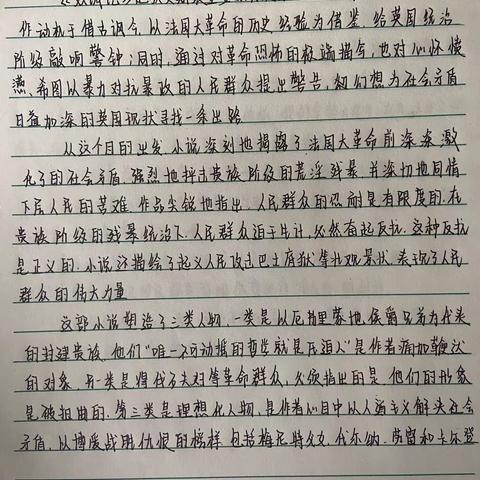 作动机于借古讽今,以法国大革命的历史经验为借鉴,给英国统治
阶级敲响警钟;同时,通过对革命恐怖的极端描写,也对心怀愤
懑、希图以暴力对抗暴政的人民群众提出警告,幻想为社会矛盾
日益加深的英国现状寻找一条出路
从这个目的出发,小说深刻地揭露了法国大革命前深深激
化了的社会矛盾,强烈地抨击贵族阶级的荒淫残暴,并深切地同情
下层人民的苦难,作品尖锐地指出,人民群众的忍耐是有限度的,在
贵族阶级的残暴统治下,人民群众迫于生计,必然奋起反抗.这种反抗
是正义的.小说还描绘了起义人民攻击巴士底狱等壮观景状,表现了人民
群众的伟大力量
这部小说塑造了三类人物.一类是以厄弗里蒙地侯爵兄弟为代表
的封建贵族,他们“唯一不可动摇的哲学就是压迫人”是作者痛加鞭
的对象.另一类是得伐石夫妇等革命群众,必须指出的是,他们的形象
是被扭曲的.第三类是理想化人物,是作者心目中以人道主义解决社会
矛盾,以博爱战胜仇恨的榜样,包括梅尼特父女、代尔纳、劳雷和卡尔登